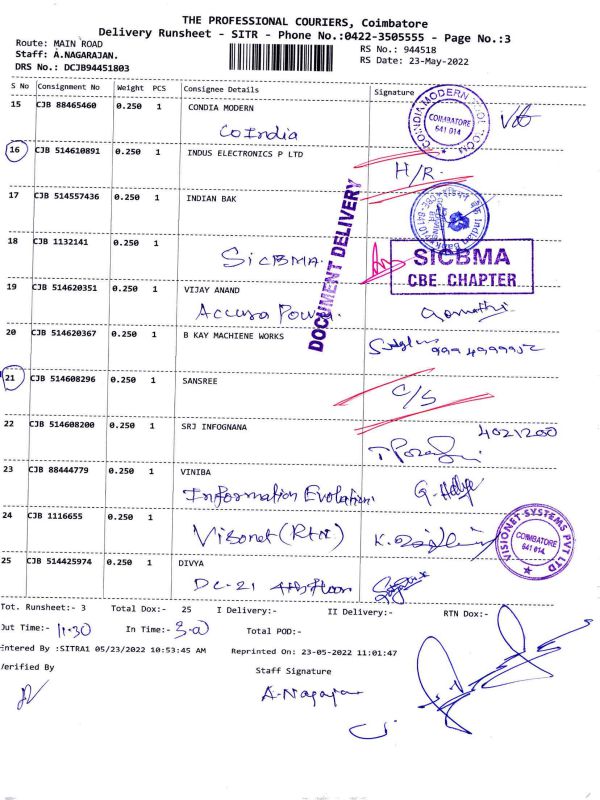 THE PROFESSIONAL COURIERS, Coimbatore
Delivery Runsheet - SITR - Phone No.:0422-3505555 - Page No.:3
Route: MAIN ROAD
RS No.: 944518
Staff: A.NAGARAJAN.
RS Date: 23-May-2022
DRS No.: DCJB94451803
S No Consignment No Weight PCS Consignee Details Signature
15 CJB 88465460 0.250 1 CONDIA MODERN
CoIndia
COIMBATORE
641 014
16 CJB 514610891 0.250 1 INDUS ELECTRONICS P LTD
H/R.
17 CJB 514557436 0.250 1 INDIAN BAK
Indian Bank
DOCUMENT DELIVERY
18 CJB 1132141 0.250 1
SICBMA.
SICBMA
CBE CHAPTER
19 CJB 514620351 0.250 1 VIJAY ANAND
Accusa Power.
Gomathi
20 CJB 514620367 0.250 1 B KAY MACHIENE WORKS
9994999952
21 CJB 514608296 0.250 1 SANSREE
C/S
22 CJB 514608200 0.250 1 SRJ INFOGNANA
4021200
23 CJB 88444779 0.250 1 VINIBA
Information Evolution.
24 CJB 1116655 0.250 1
Visonet (RTN)
VISIONET SYSTEMS PVT LTD
COIMBATORE
641 014.
25 CJB 514425974 0.250 1 DIVYA
DC-21 4th floor
Tot. Runsheet:- 3 Total Dox:- 25 I Delivery:- II Delivery:- RTN Dox:-
Out Time:- 11.30 In Time:- 3-0 Total POD:-
Entered By :SITRA1 05/23/2022 10:53:45 AM Reprinted On: 23-05-2022 11:01:47
Verified By Staff Signature
A.Nagajan